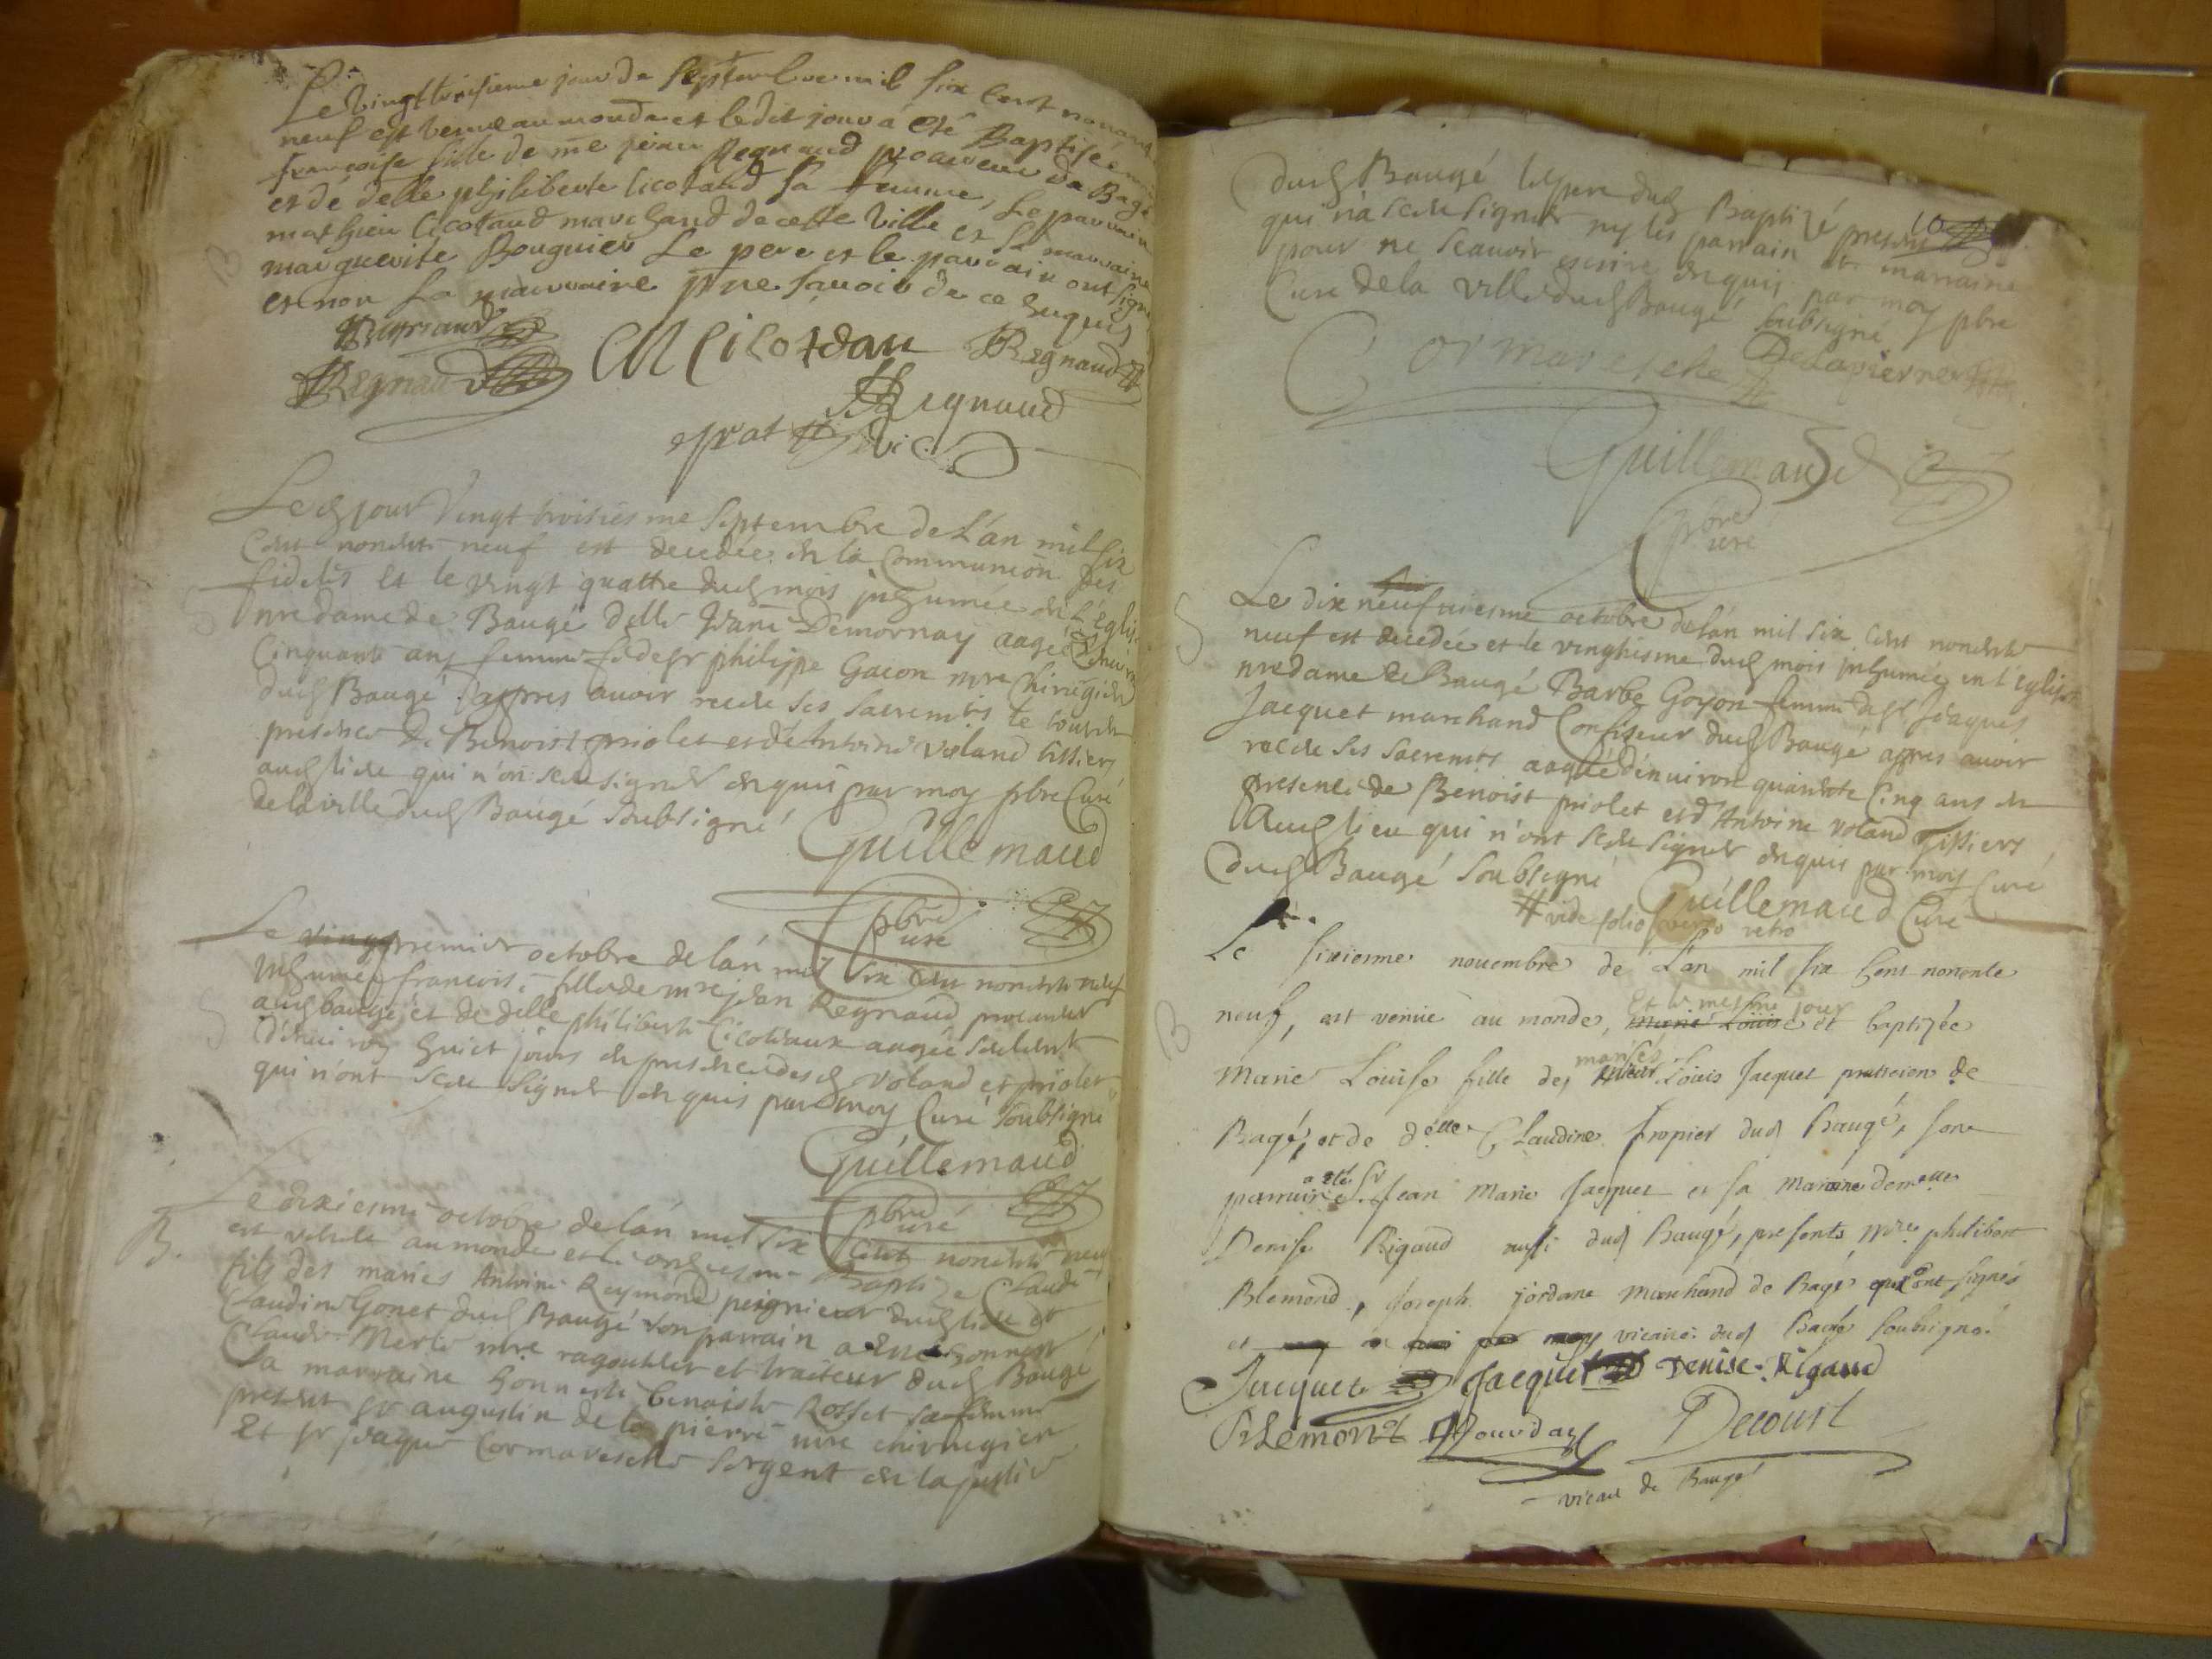 Le vingt troisieme jour de septembre mil six cent nonante
neuf est venue au monde et ledit jour a été Baptisée
francoise fille de me jean Regnaud procureur de Bagé
et de delle philiberte licotaud sa femme, Le parrain
mathieu licotaud marchand de cette ville et la marraine
marguerite Bouguier Le pere et le parrain ont signé
et non La marraine pr ne savoir de ce enquis
Regnaud
Regnaud
Regnaud
Regnaud
vic
B
Led jour vingt troisiesme septembre de L'an mil six
cent nonente neuf est decedée en la Communion des
fidelles et le vingt quattre dud mois inhumée en L'Eglise
nre dame de Baugé delle Jeane Demornay aagée d'environ
Cinquante ans femme de sr philippe Gacon mre Chirugien
dud Baugé apres avoir receu ses sacremts le tout en
presence de Benoist priolet et de Antoine voland tissiers
aud lieu qui n'on sceu signer enquis par moy pbre Curé
de la ville dud Baugé soubsigné
Guillemaud
pbre
curé
S
Le premier octobre de l'an mil six cent nonente neuf
inhumée francoise fille de mre jean Regnaud procureur
aud baugé et de delle philiberte Licotaux aagée seulement
d'environ huict jours en presence desd voland et priolet
qui n'ont sceu signer enquis par moy Curé soubsigné
Guillemaud
pbre
curé
S
Le dixiesme octobre de l'an mil six cent nonente neuf
est venu au monde et le onziesme Baptizé Claude
fils des mariés Antoine Reymond peignieur dud lieu et
Claudine Gonet dud Baugé son parrain a été honneste
Claude Merle mre ragoutier et traiteur dud Baugé
sa marraine honneste benoiste Rosset sa femme
present sr augustin de la pierre mre chirurgien
Et sr jaques Cormaresche sergent en la justice
B.
dud Baugé le pere dud Baptizé present
10
qui n'a sceu signer ny les parrain et marraine
pour ne scavoir escrire enquis par moy pbre
Curé de la ville dud Baugé soubsigné
Cormaresche
Delapierre
Guillemaud
pbre
curé
Le dix neufviesme octobre de l'an mil six cent nonente
neuf est decedée et le vingtiesme dud mois inhumée en l'Eglise
nre dame de Baugé Barbe Goyon femme de sr Jaques
Jacquet marchand Confiseur dud Baugé apres avoir
receu ses sacremts aagée d'environ quarante cinq ans en
presence de Benoist priolet et d'Antoine voland tissiers
aud lieu qui n'ont sceu signer enquis par moy Curé
dud Baugé soubsigné
Guillemaud Curé
S
# vide folio verso retro
Le sixiesme novembre de L'an mil six Cent nonente
et le mesme jour
neuf, est venue au monde, Marie Louise et baptizée
mariés
Marie Louise fille des Louis Jacquet praticien de
Bagé, et de delle Claudine fropier dud Baugé, son
a été sr
parrain Jean Marie Jacquet et sa Maraine demelle
Denise Rigaud aussi dud Baugé, presents Mre philibert
Blemond, Joseph jordane Marchand de Bagé qui ont signés
et vicaire dud Baugé soubsigné.
B
Jacquet Jacquet Denise Rigaud
Blemont Jourdan Decourt
vicaire de Baugé